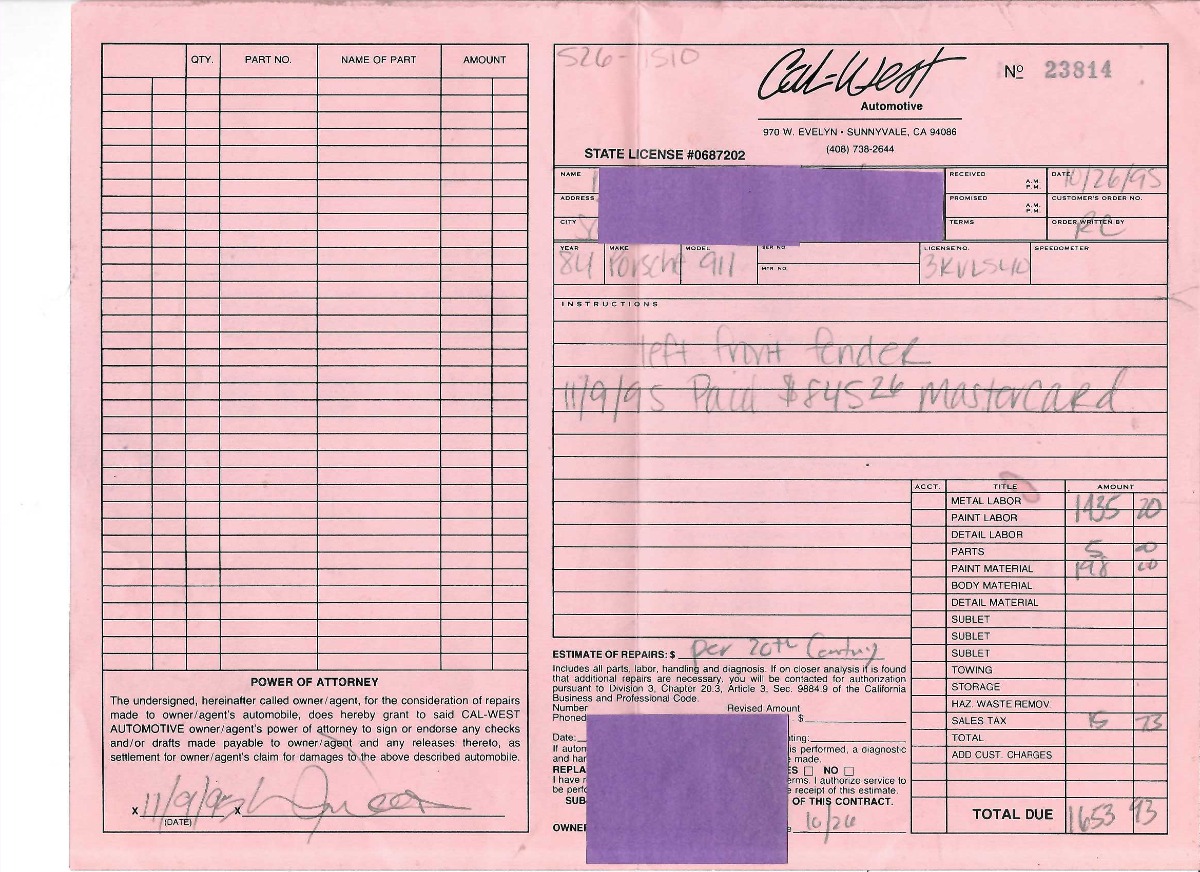 QTY. PART NO. NAME OF PART AMOUNT
POWER OF ATTORNEY
The undersigned, hereinafter called owner/agent, for the consideration of repairs
made to owner/agent's automobile, does hereby grant to said CAL-WEST
AUTOMOTIVE owner/agent's power of attorney to sign or endorse any checks
and/or drafts made payable to owner/agent and any releases thereto, as
settlement for owner/agent's claim for damages to the above described automobile.
x 11/9/95 x
(DATE)
526-1510
Cal-West
Automotive
Nº 23814
970 W. EVELYN • SUNNYVALE, CA 94086
(408) 738-2644
STATE LICENSE #0687202
NAME RECEIVED A.M. P.M. DATE 10/26/95
ADDRESS PROMISED A.M. P.M. CUSTOMER'S ORDER NO.
CITY TERMS ORDER WRITTEN BY RC
YEAR MAKE MODEL SER. NO. LICENSE NO. SPEEDOMETER
84 Porsche 911 MTR. NO. 3KVL540
INSTRUCTIONS
left front fender
11/9/95 Paid $845 26 Mastercard
ACCT. TITLE AMOUNT
METAL LABOR
PAINT LABOR 1435 20
DETAIL LABOR
PARTS 5 00
PAINT MATERIAL 198 00
BODY MATERIAL
DETAIL MATERIAL
SUBLET
SUBLET
SUBLET
TOWING
STORAGE
HAZ. WASTE REMOV.
SALES TAX 15 73
TOTAL
ADD CUST. CHARGES
TOTAL DUE 1653 93
ESTIMATE OF REPAIRS: $ per 20th Century
Includes all parts, labor, handling and diagnosis. If on closer analysis it is found
that additional repairs are necessary, you will be contacted for authorization
pursuant to Division 3, Chapter 20.3, Article 3, Sec. 9884.9 of the California
Business and Professional Code.
Number Revised Amount
Phoned $
Date:
If autom is performed, a diagnostic
and har made.
REPLA ES NO
I have r erms. I authorize service to
be perfo e receipt of this estimate.
SUB OF THIS CONTRACT.
OWNER 10/26